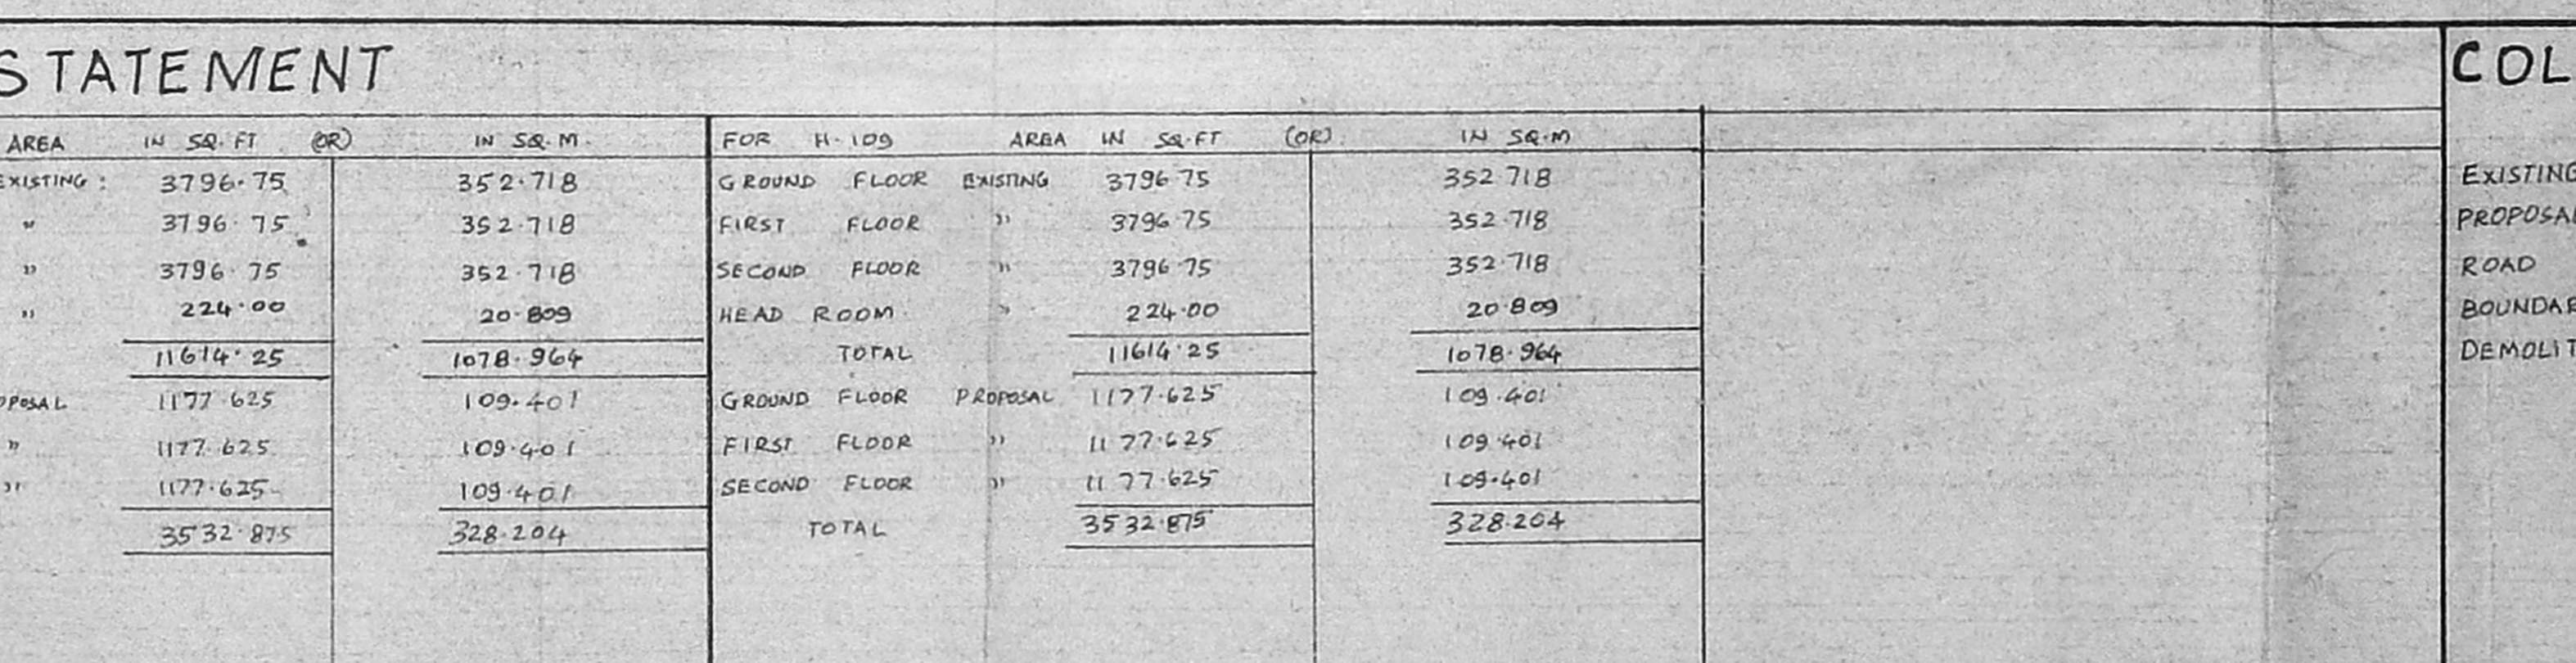 STATEMENT
AREA IN SQ.FT (OR) IN SQ.M.
EXISTING: 3796.75 352.718
" 3796.75 352.718
" 3796.75 352.718
" 224.00 20.809
11614.25 1078.964
OPOSAL 1177.625 109.401
" 1177.625 109.401
" 1177.625 109.401
3532.875 328.204
FOR H-109 AREA IN SQ.FT (OR) IN SQ.M
GROUND FLOOR EXISTING 3796.75 352.718
FIRST FLOOR " 3796.75 352.718
SECOND FLOOR " 3796.75 352.718
HEAD ROOM " 224.00 20.809
TOTAL 11614.25 1078.964
GROUND FLOOR PROPOSAL 1177.625 109.401
FIRST FLOOR " 1177.625 109.401
SECOND FLOOR " 1177.625 109.401
TOTAL 3532.875 328.204
COL
EXISTING
PROPOSAL
ROAD
BOUNDAR
DEMOLIT